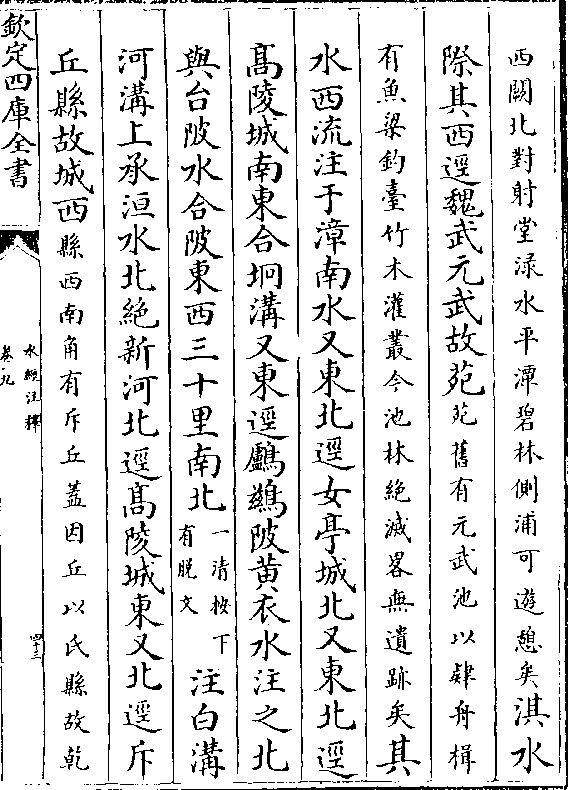 西闕北對射堂渌水平潭碧林側浦可遊憩矣淇水
際其西逕魏武元武故苑苑舊有元武池以肄舟楫
有魚梁釣臺竹木灌叢今池林絶滅畧無遺跡矣其
水西流注于漳南水又東北逕女亭城北又東北逕
髙陵城南東合坰溝又東逕鸕鷀陂黄衣水注之北
與台陂水合陂東西三十里南北一清按下有脱文注白溝
河溝上承洹水北絶新河北逕髙陵城東又北逕斥
丘縣故城西縣西南角有斥丘蓋因丘以氏縣故乾
欽定四庫全書
水經注釋
卷九
四十三